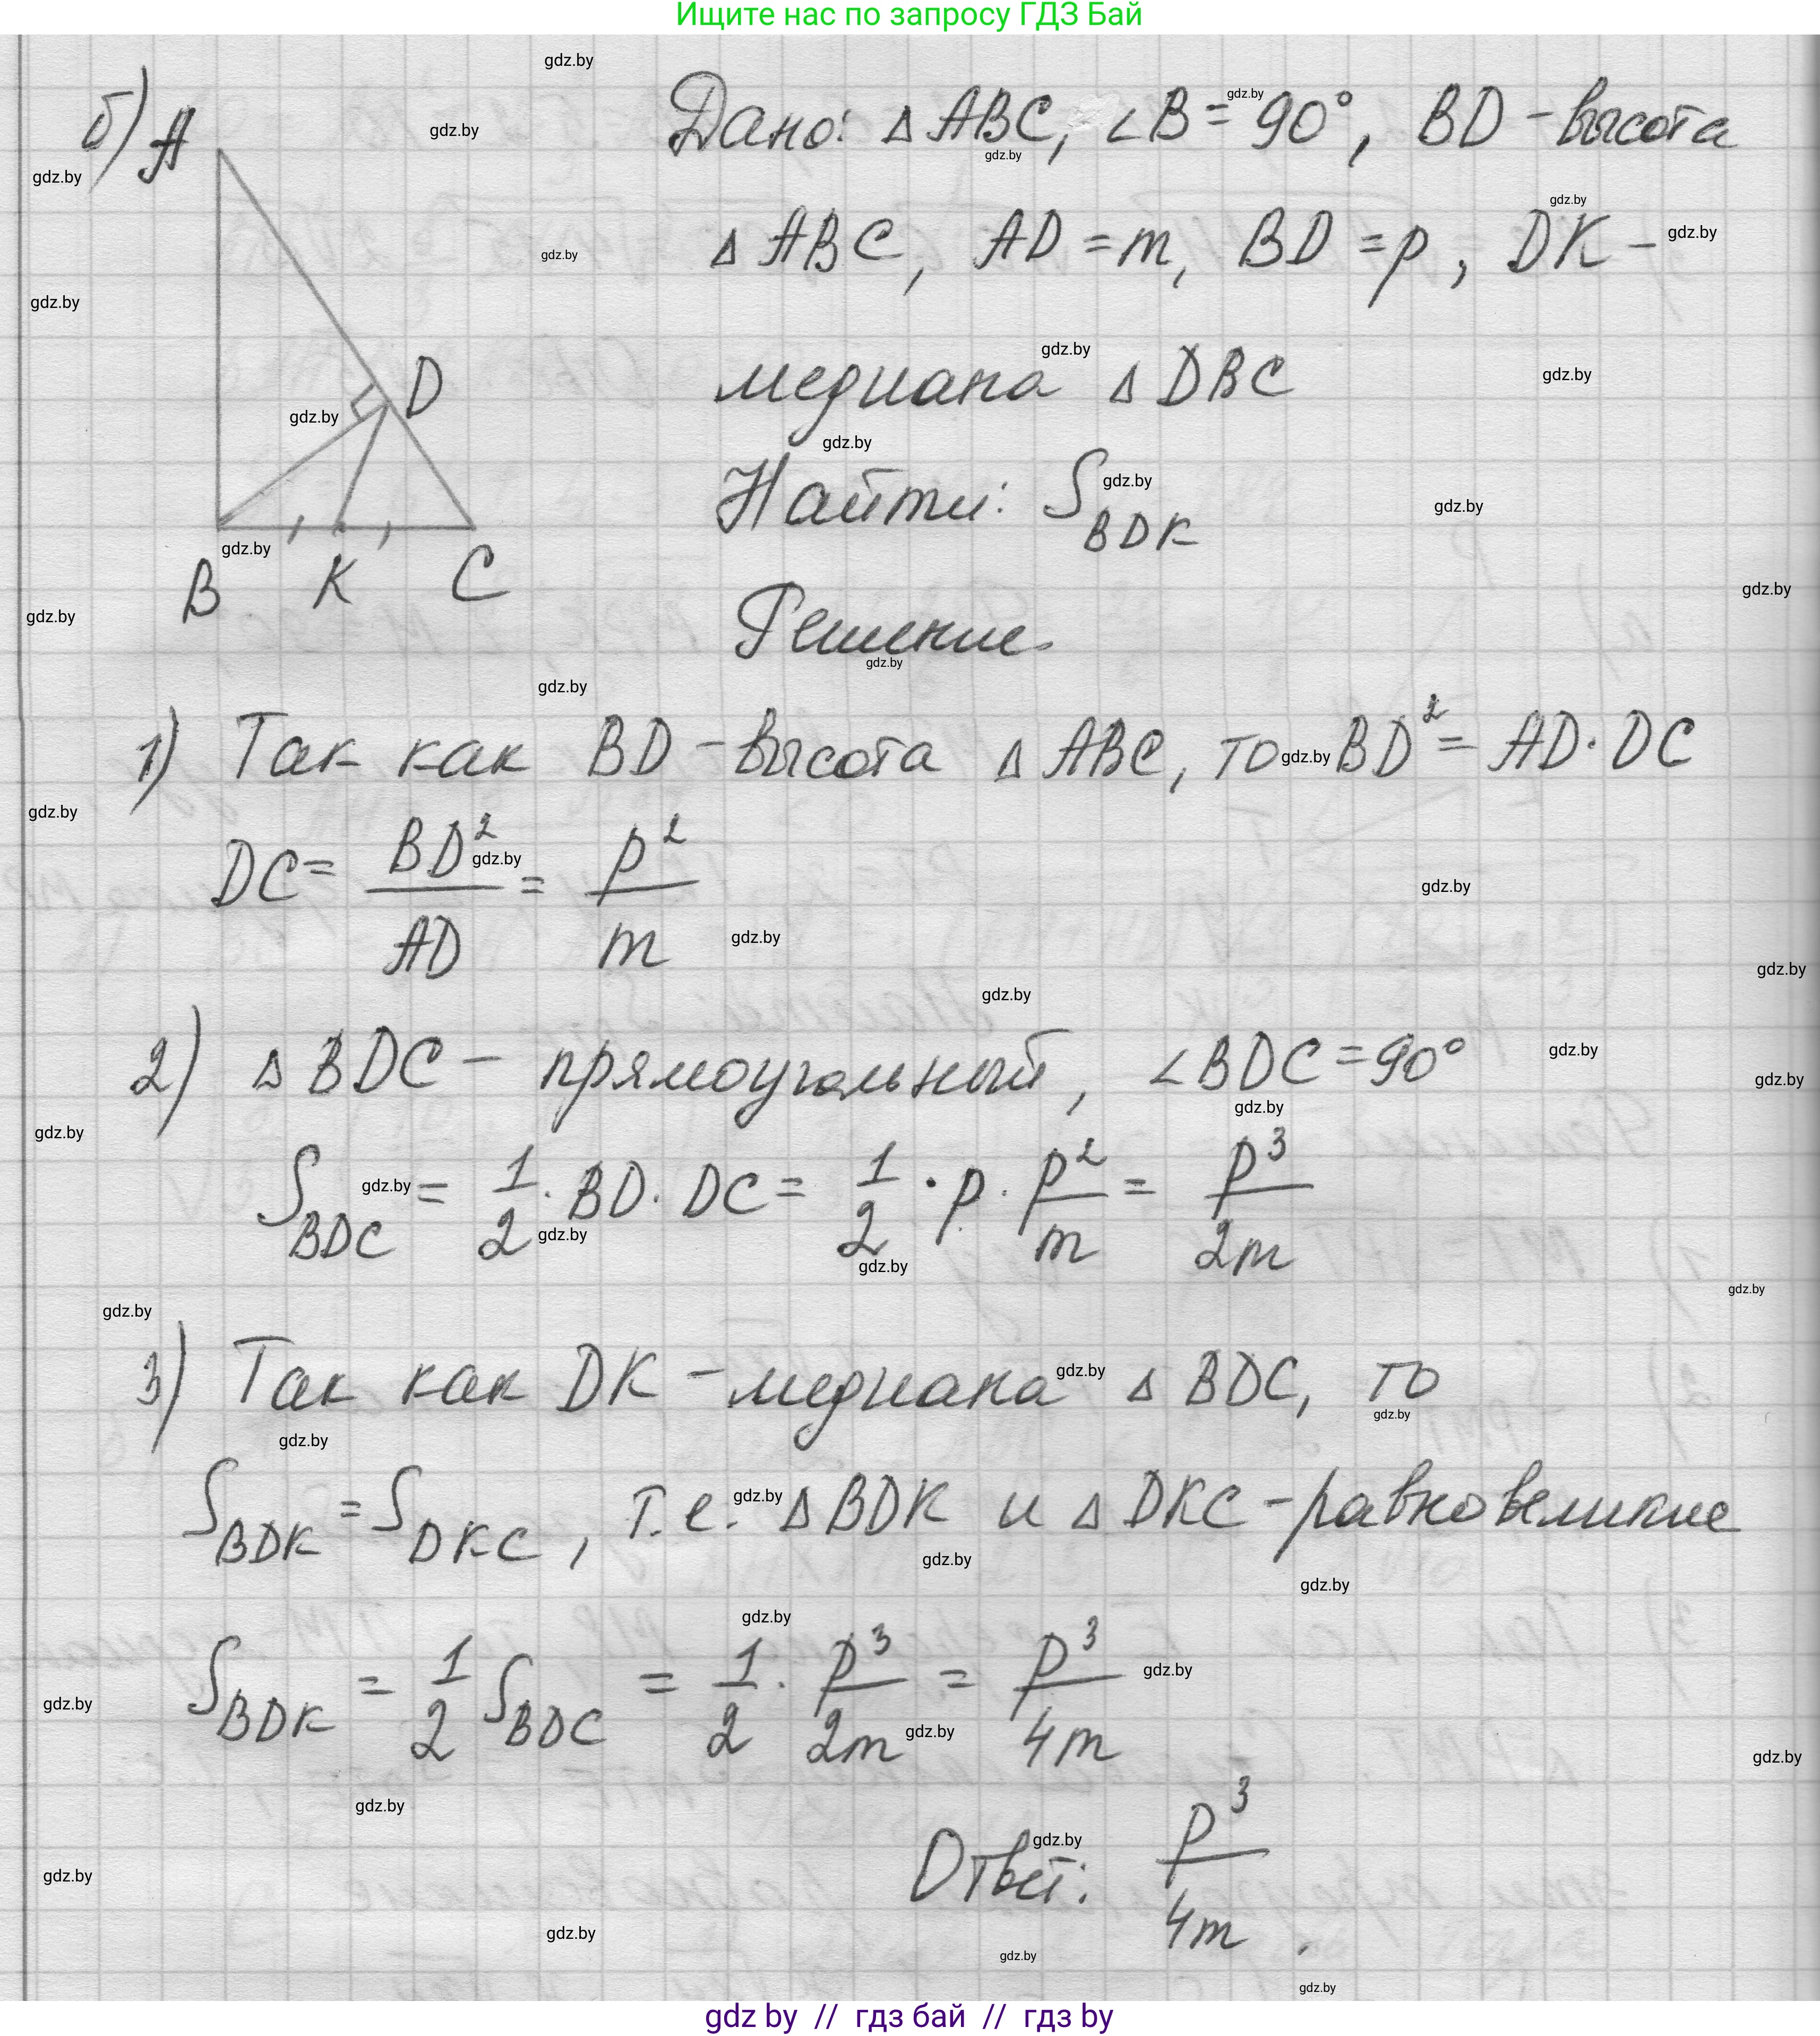 Ищите нас по запросу ГДЗ Бай
б) A
Дано: △ ABC, ∠B = 90°, BD - высота
△ ABC, AD = m, BD = p, DK -
медиана △ DBC
D
Найти: S BDK
B K C
Решение.
1) Так как BD - высота △ ABC, то BD² = AD · DC
DC = BD²/AD = p²/m
2) △ BDC - прямоугольный, ∠BDC = 90°
S BDC = 1/2 · BD · DC = 1/2 · p · p²/m = p³/2m
3) Так как DK - медиана △ BDC, то
S BDK = S DKC, т.е. △ BDK и △ DKC - равновеликие
S BDK = 1/2 S BDC = 1/2 · p³/2m = p³/4m
Ответ: p³/4m.
gdz by // гдз бай // гдз by